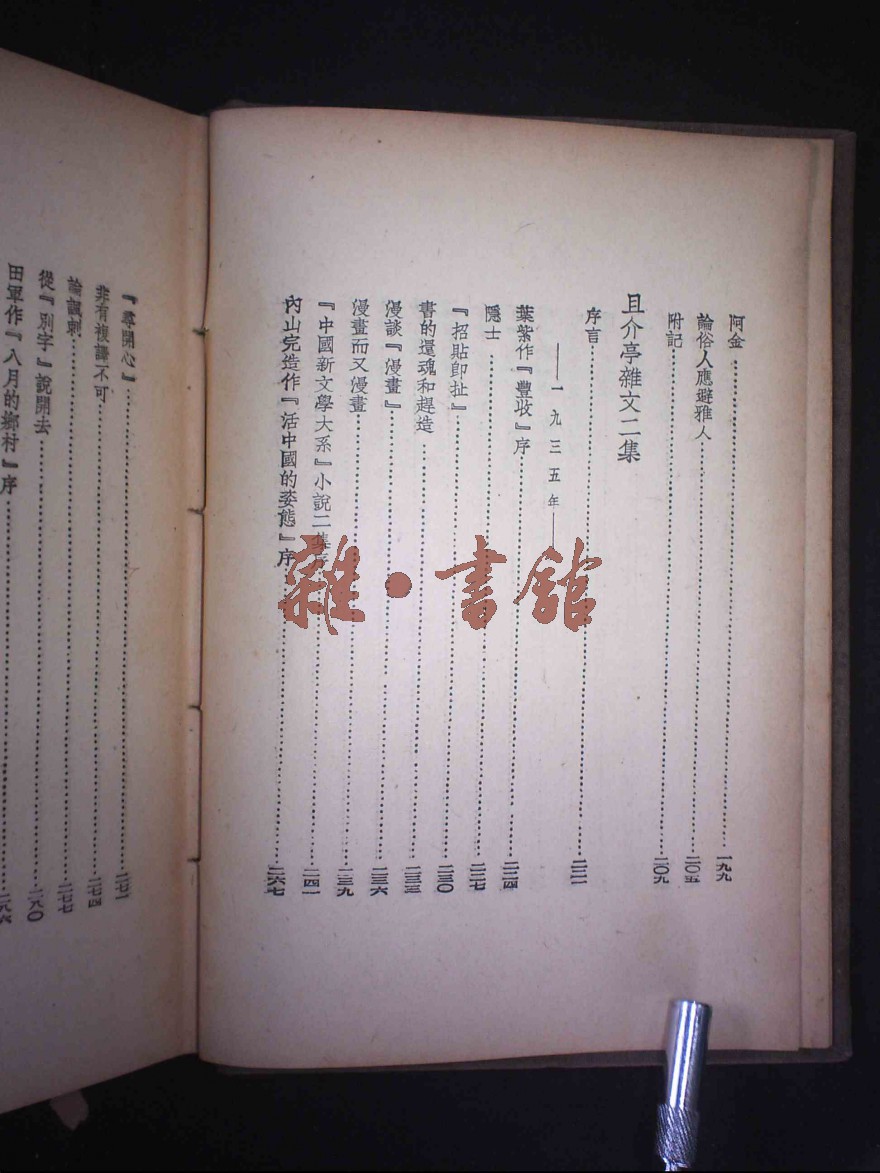 阿金…………一九九
論俗人應避雅人…………二〇五
附記…………二〇九
且介亭雜文二集
序言…………二二一
——一九三五年——
葉紫作『豐收』序…………二二四
隱士…………二二七
『招貼即扯』…………二三〇
書的還魂和趕造…………二三三
漫談『漫畫』…………二三六
漫畫而又漫畫…………二三九
『中國新文學大系』小說二集序…………二四一
內山完造作『活中國的姿態』序…………二六七
『尋開心』…………二七一
非有複譯不可…………二七四
論諷刺…………二七七
從『別字』說開去…………二八〇
田軍作『八月的鄉村』序…………二八六
雜·書舘